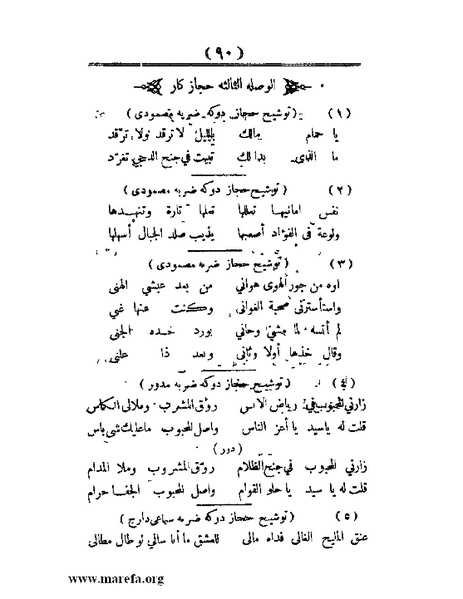 (٩٠)
الوصله الثالثه حجاز كار
(١) (توشيح حجاز دوكه ضربه مصمودى)
يا حمام مالك بالليل لا ترقد ولا ترقد
ما الذى بدالك تبيت فى جنح الدجى تغرد
(٢) (توشيح حجاز دوكه ضربه مصمودى)
نفس امانيها تعللها تعلها تارة وتنهدها
ولوعة فى الفؤاد أصعبها يذيب صلد الجبال أسهلها
(٣) (توشيح حجاز ضربه مصمودى)
اوه من جور الهوى هوانى من بعد عيشى الهنى
واستأسرتنى صحبة الغوانى وكنت عنها غنى
لم أنسه لما مشى وحانى بورد خده الجنى
وقال خذها أولا وثانى وبعد ذا علنى
(٤) (توشيح حجاز دوكه ضربه مدور)
زارنى المحبوب فى رياض الآس روق المشرب وملالى الكاس
قلت له ياسيد يا أعز الناس واصل المحبوب ماعليك شى باس
(دور)
زارنى المحبوب فى جنح الظلام روق المشروب وملا المدام
قلت له يا سيد يا حلو القوام واصل المحبوب الجفا حرام
(٥) (توشيح حجاز دوكه ضربه سماعى دارج)
عنق المليح الغالى فداه مالى للعشق ما أنا سالى لو طال مطالى
www.marefa.org